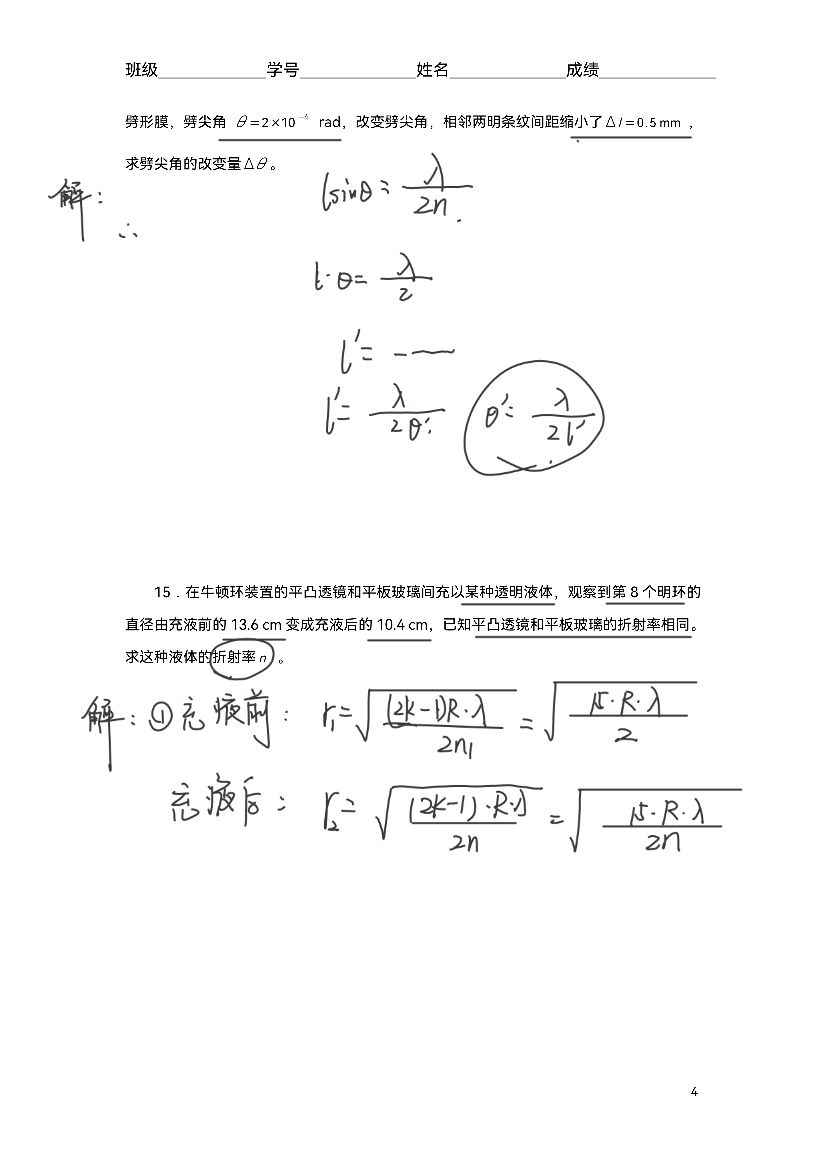 班级 学号 姓名 成绩
劈形膜，劈尖角 θ=2×10⁻⁴ rad，改变劈尖角，相邻两明条纹间距缩小了Δl=0.5 mm ，
求劈尖角的改变量Δθ。
解：
lsinθ = λ/2n
∴
l·θ = λ/2
l′=
l′= λ/2θ′ θ′= λ/2l′
15．在牛顿环装置的平凸透镜和平板玻璃间充以某种透明液体，观察到第 8 个明环的
直径由充液前的 13.6 cm 变成充液后的 10.4 cm，已知平凸透镜和平板玻璃的折射率相同。
求这种液体的折射率 n 。
解：①充液前： r₁=√((2k-1)R·λ/2n₁) = √(15·R·λ/2)
充液后： r₂=√((2k-1)·R·λ/2n) = √(15·R·λ/2n)
4